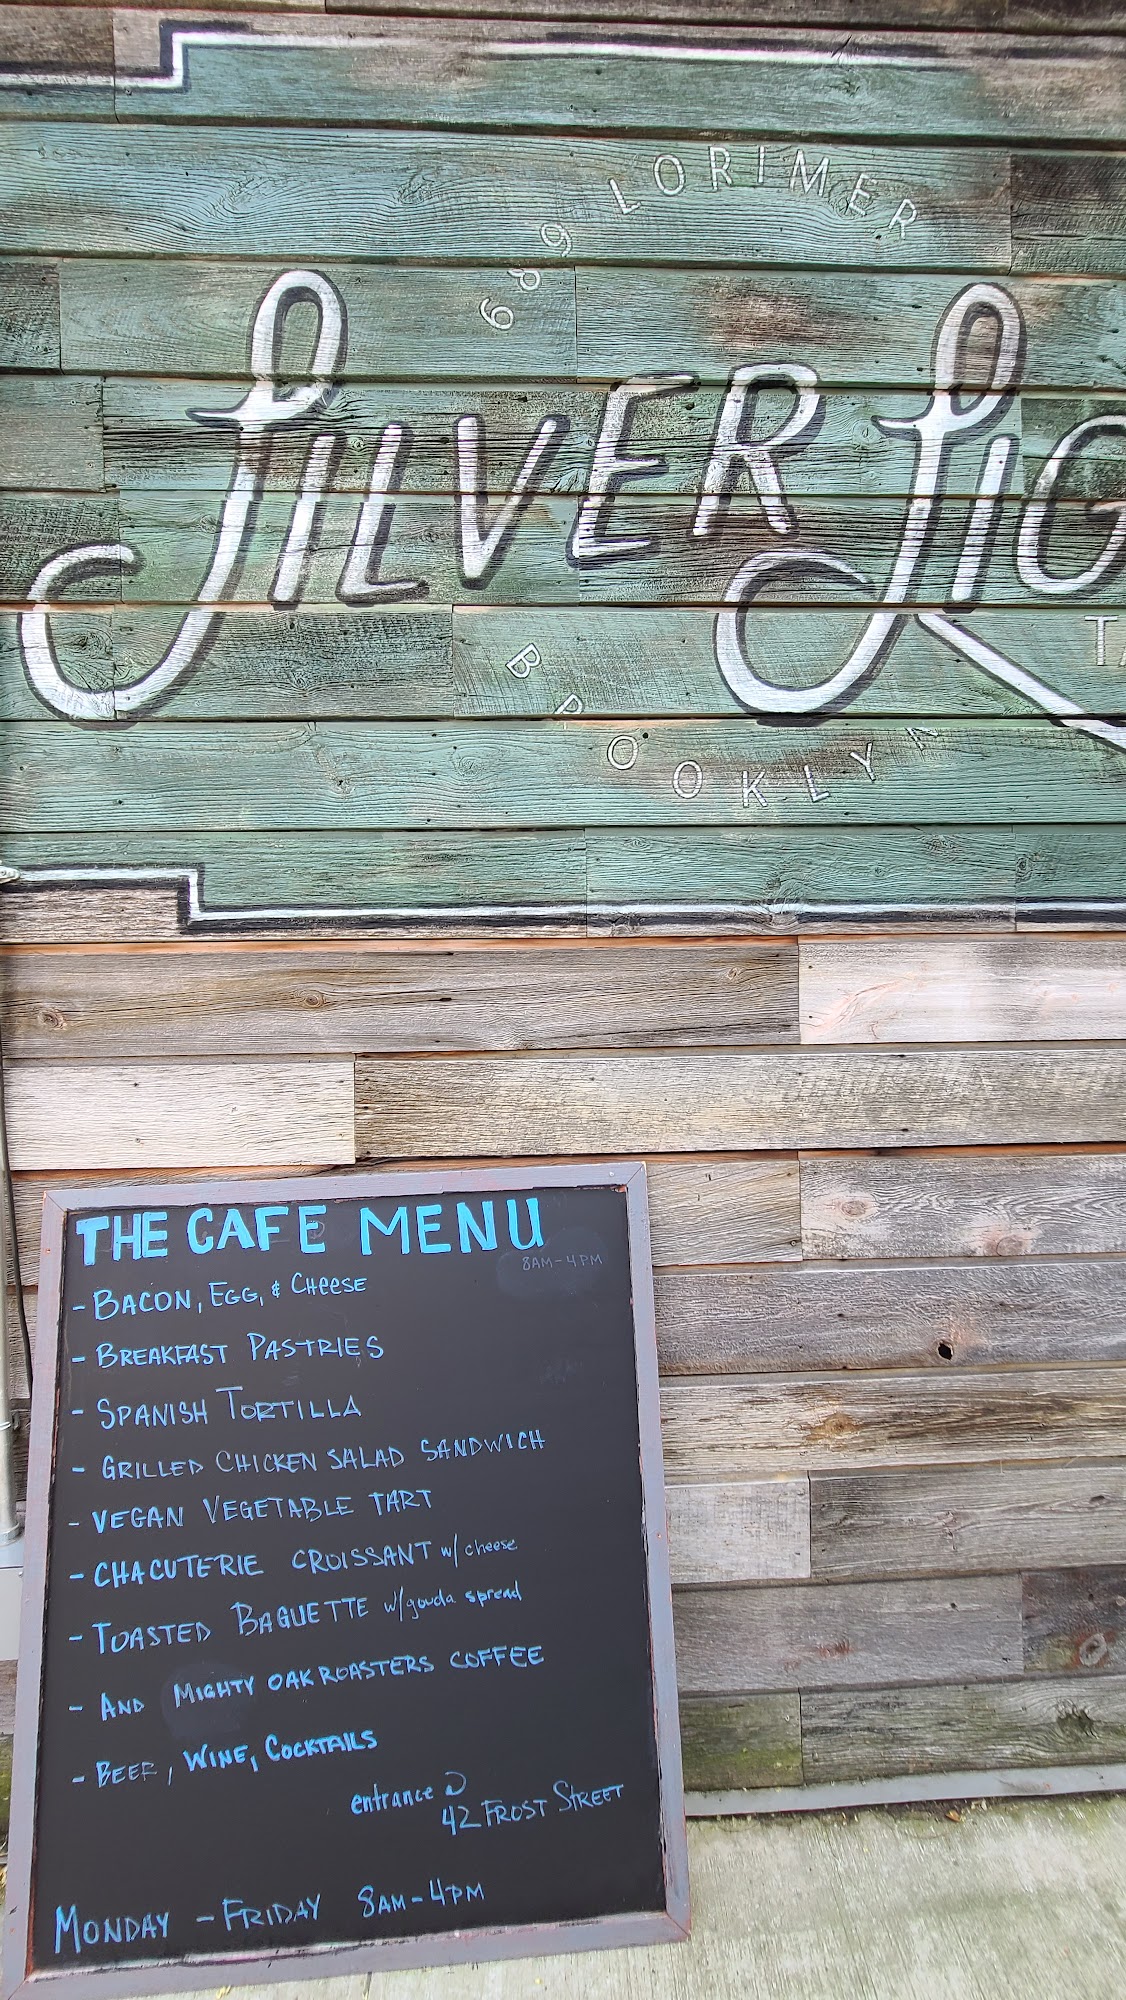 689 LORIMER
SILVER LIG
TA
BROOKLYN
THE CAFE MENU
8AM-4PM
- BACON, EGG, & CHEESE
- BREAKFAST PASTRIES
- SPANISH TORTILLA
- GRILLED CHICKEN SALAD SANDWICH
- VEGAN VEGETABLE TART
- CHACUTERIE CROISSANT w/ cheese
- TOASTED BAGUETTE w/gouda spread
- AND MIGHTY OAK ROASTERS COFFEE
- BEER, WINE, COCKTAILS
entrance @
42 FROST STREET
MONDAY - FRIDAY 8AM-4PM